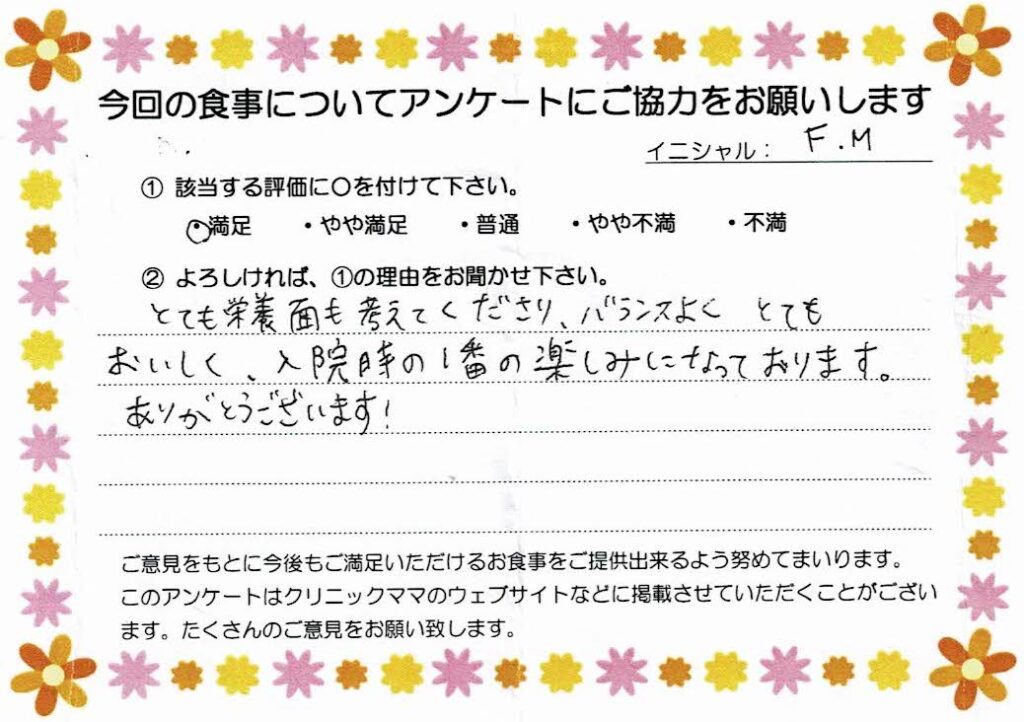 今回の食事についてアンケートにご協力をお願いします
イニシャル： F.M
① 該当する評価に〇を付けて下さい。
・満足 ・やや満足 ・普通 ・やや不満 ・不満
② よろしければ、①の理由をお聞かせ下さい。
とても栄養面も考えてくださり、バランスよく とても
おいしく、入院時の1番の楽しみになっております。
ありがとうございます!
ご意見をもとに今後もご満足いただけるお食事をご提供出来るよう努めてまいります。
このアンケートはクリニックママのウェブサイトなどに掲載させていただくことがござい
ます。たくさんのご意見をお願い致します。